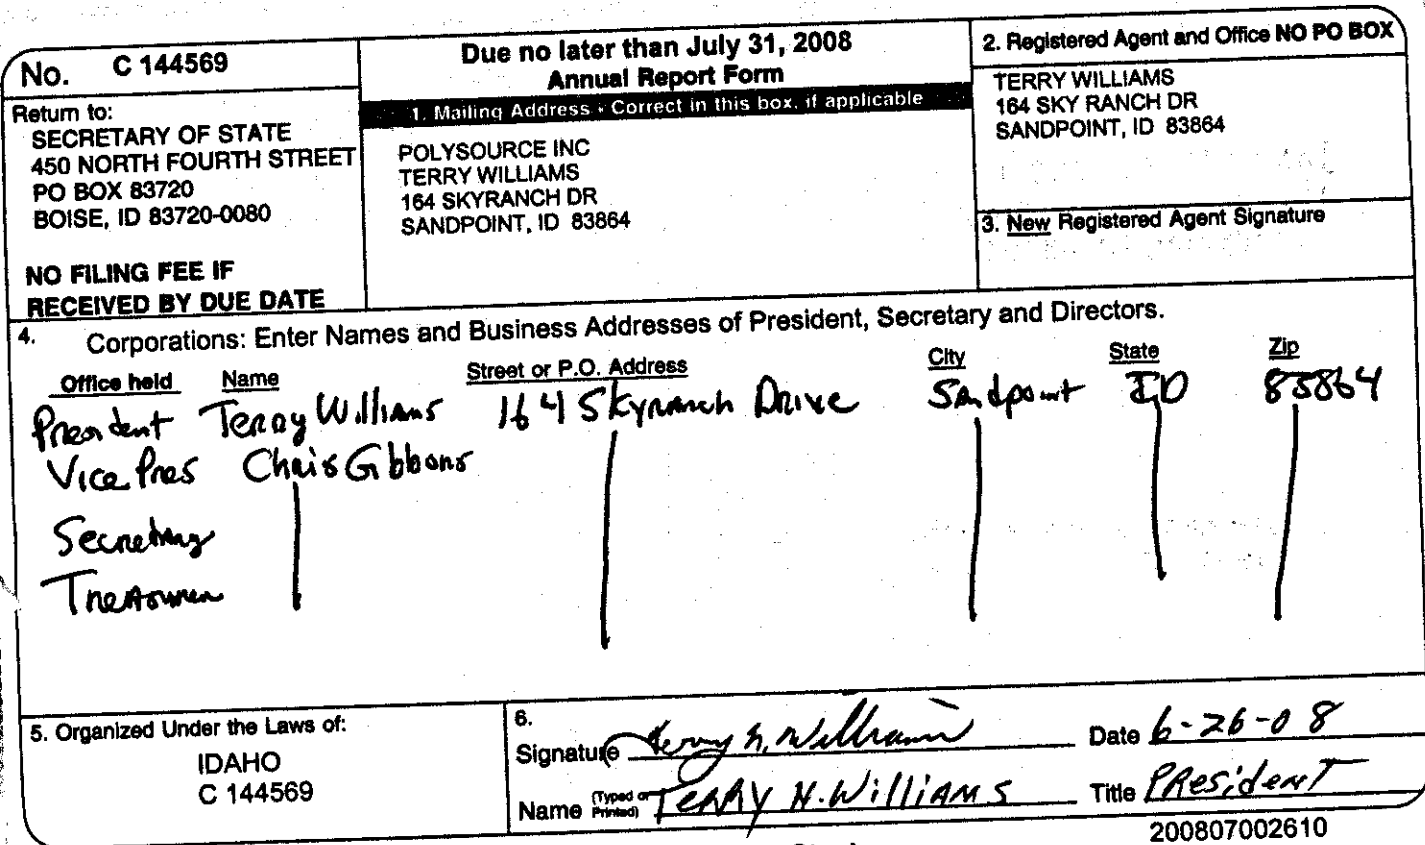 No. C 144569
Return to:
SECRETARY OF STATE
450 NORTH FOURTH STREET
PO BOX 83720
BOISE, ID 83720-0080
NO FILING FEE IF
RECEIVED BY DUE DATE
Due no later than July 31, 2008
Annual Report Form
1. Mailing Address - Correct in this box, if applicable
POLYSOURCE INC
TERRY WILLIAMS
164 SKYRANCH DR
SANDPOINT, ID 83864
2. Registered Agent and Office NO PO BOX
TERRY WILLIAMS
164 SKY RANCH DR
SANDPOINT, ID 83864
3. New Registered Agent Signature
4. Corporations: Enter Names and Business Addresses of President, Secretary and Directors.
Office held Name Street or P.O. Address City State Zip
President Terry Williams 164 Skyranch Drive Sandpoint ID 83864
Vice Pres Chris Gibbons
Secretary
Treasurer
5. Organized Under the Laws of:
IDAHO
C 144569
6.
Signature Terry N. Williams Date 6-26-08
Name (Typed or Printed) TERRY N. WilliAMS Title PResidenT
200807002610